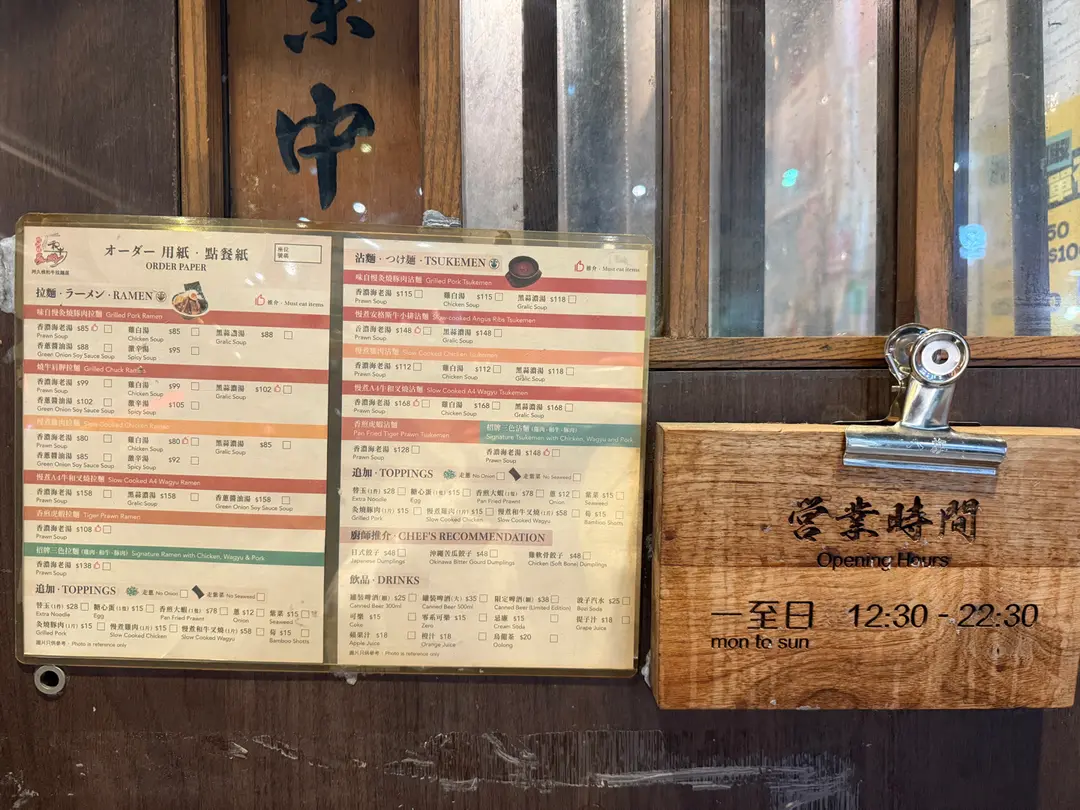 業中
オーダー 用紙 · 點餐紙
ORDER PAPER
拉麵 · ラーメン · RAMEN
推介 · Must eat items
味自慢灸燒豚肉拉麵 Grilled Pork Ramen
香濃海老湯 $85 雞白湯 $85 黑蒜濃湯 $88
Prawn Soup Chicken Soup Gralic Soup
香蔥醬油湯 $88 激辛湯 $95
Green Onion Soy Sauce Soup Spicy Soup
燒牛肩胛拉麵 Grilled Chuck Ramen
香濃海老湯 $99 雞白湯 $99 黑蒜濃湯 $102
Prawn Soup Chicken Soup Gralic Soup
香蔥醬油湯 $102 激辛湯 $105
Green Onion Soy Sauce Soup Spicy Soup
慢煮雞肉拉麵 Slow Cooked Chicken Ramen
香濃海老湯 $80 雞白湯 $80 黑蒜濃湯 $85
Prawn Soup Chicken Soup Gralic Soup
香蔥醬油湯 $85 激辛湯 $92
Green Onion Soy Sauce Soup Spicy Soup
慢煮A4牛和叉燒拉麵 Slow Cooked A4 Wagyu Ramen
香濃海老湯 $158 黑蒜濃湯 $158 香蔥醬油湯 $158
Prawn Soup Gralic Soup Green Onion Soy Sauce Soup
香煎虎蝦拉麵 Tiger Prawn Ramen
香濃海老湯 $108
Prawn Soup
招牌三色拉麵 (雞肉 · 和牛 · 豚肉) Signature Ramen with Chicken, Wagyu & Pork
香濃海老湯 $138
Prawn Soup
追加 · TOPPINGS 走蔥 No Onion 走紫菜 No Seaweed
替玉(1件) $28 糖心蛋(1隻) $15 香煎大蝦(1隻) $78 蔥 $12 紫菜 $15
Extra Noodle Egg Pan Fried Prawnt Onion Seaweed
灸燒豚肉(1片) $15 慢煮雞肉(1片) $15 慢煮和牛叉燒(1片) $58 筍 $15
Grilled Pork Slow Cooked Chicken Slow Cooked Wagyu Bamboo Shorts
圖片只供參考 · Photo is reference only
沾麵 · つけ麺 · TSUKEMEN
推介 · Must eat items
味自慢灸燒豚肉沾麵 Grilled Pork Tsukemen
香濃海老湯 $115 雞白湯 $115 黑蒜濃湯 $118
Prawn Soup Chicken Soup Gralic Soup
慢煮安格斯牛小排沾麵 Slow-cooked Angus Ribs Tsukemen
香濃海老湯 $148 黑蒜濃湯 $148
Prawn Soup Gralic Soup
慢煮雞肉沾麵 Slow Cooked Chicken Tsukemen
香濃海老湯 $112 雞白湯 $112 黑蒜濃湯 $118
Prawn Soup Chicken Soup Gralic Soup
慢煮A4牛和叉燒沾麵 Slow Cooked A4 Wagyu Tsukemen
香濃海老湯 $168 雞白湯 $168 黑蒜濃湯 $168
Prawn Soup Chicken Soup Gralic Soup
香煎虎蝦沾麵 招牌三色沾麵 (雞肉 · 和牛 · 豚肉)
Pan Fried Tiger Prawn Tsukemen Signature Tsukemen with Chicken, Wagyu and Pork
香濃海老湯 $128 香濃海老湯 $148
Prawn Soup Prawn Soup
追加 · TOPPINGS 走蔥 No Onion 走紫菜 No Seaweed
替玉(1件) $28 糖心蛋(1隻) $15 香煎大蝦(1隻) $78 蔥 $12 紫菜 $15
Extra Noodle Egg Pan Fried Prawnt Onion Seaweed
灸燒豚肉(1片) $15 慢煮雞肉(1片) $15 慢煮和牛叉燒(1片) $58 筍 $15
Grilled Pork Slow Cooked Chicken Slow Cooked Wagyu Bamboo Shorts
廚師推介 · CHEF'S RECOMMENDATION
日式餃子 $48 沖繩苦瓜餃子 $48 雞軟骨餃子 $48
Japanese Dumplings Okinawa Bitter Gourd Dumplings Chicken (Soft Bone) Dumplings
飲品 · DRINKS
罐裝啤酒(細) $25 罐裝啤酒(大) $35 限定啤酒(罐) $38 波子汽水 $25
Canned Beer 300ml Canned Beer 500ml Canned Beer (Limited Edition) Bust Soda
可樂 $15 零系可樂 $15 忌廉 $15 提子汁 $18
Coke Zero Cream Soda Grape Juice
蘋果汁 $18 橙汁 $18 烏龍茶 $20
Apple Juice Orange Juice Oolong
圖片只供參考 · Photo is reference only
営業時間
Opening Hours
一至日 12:30 - 22:30
mon to sun